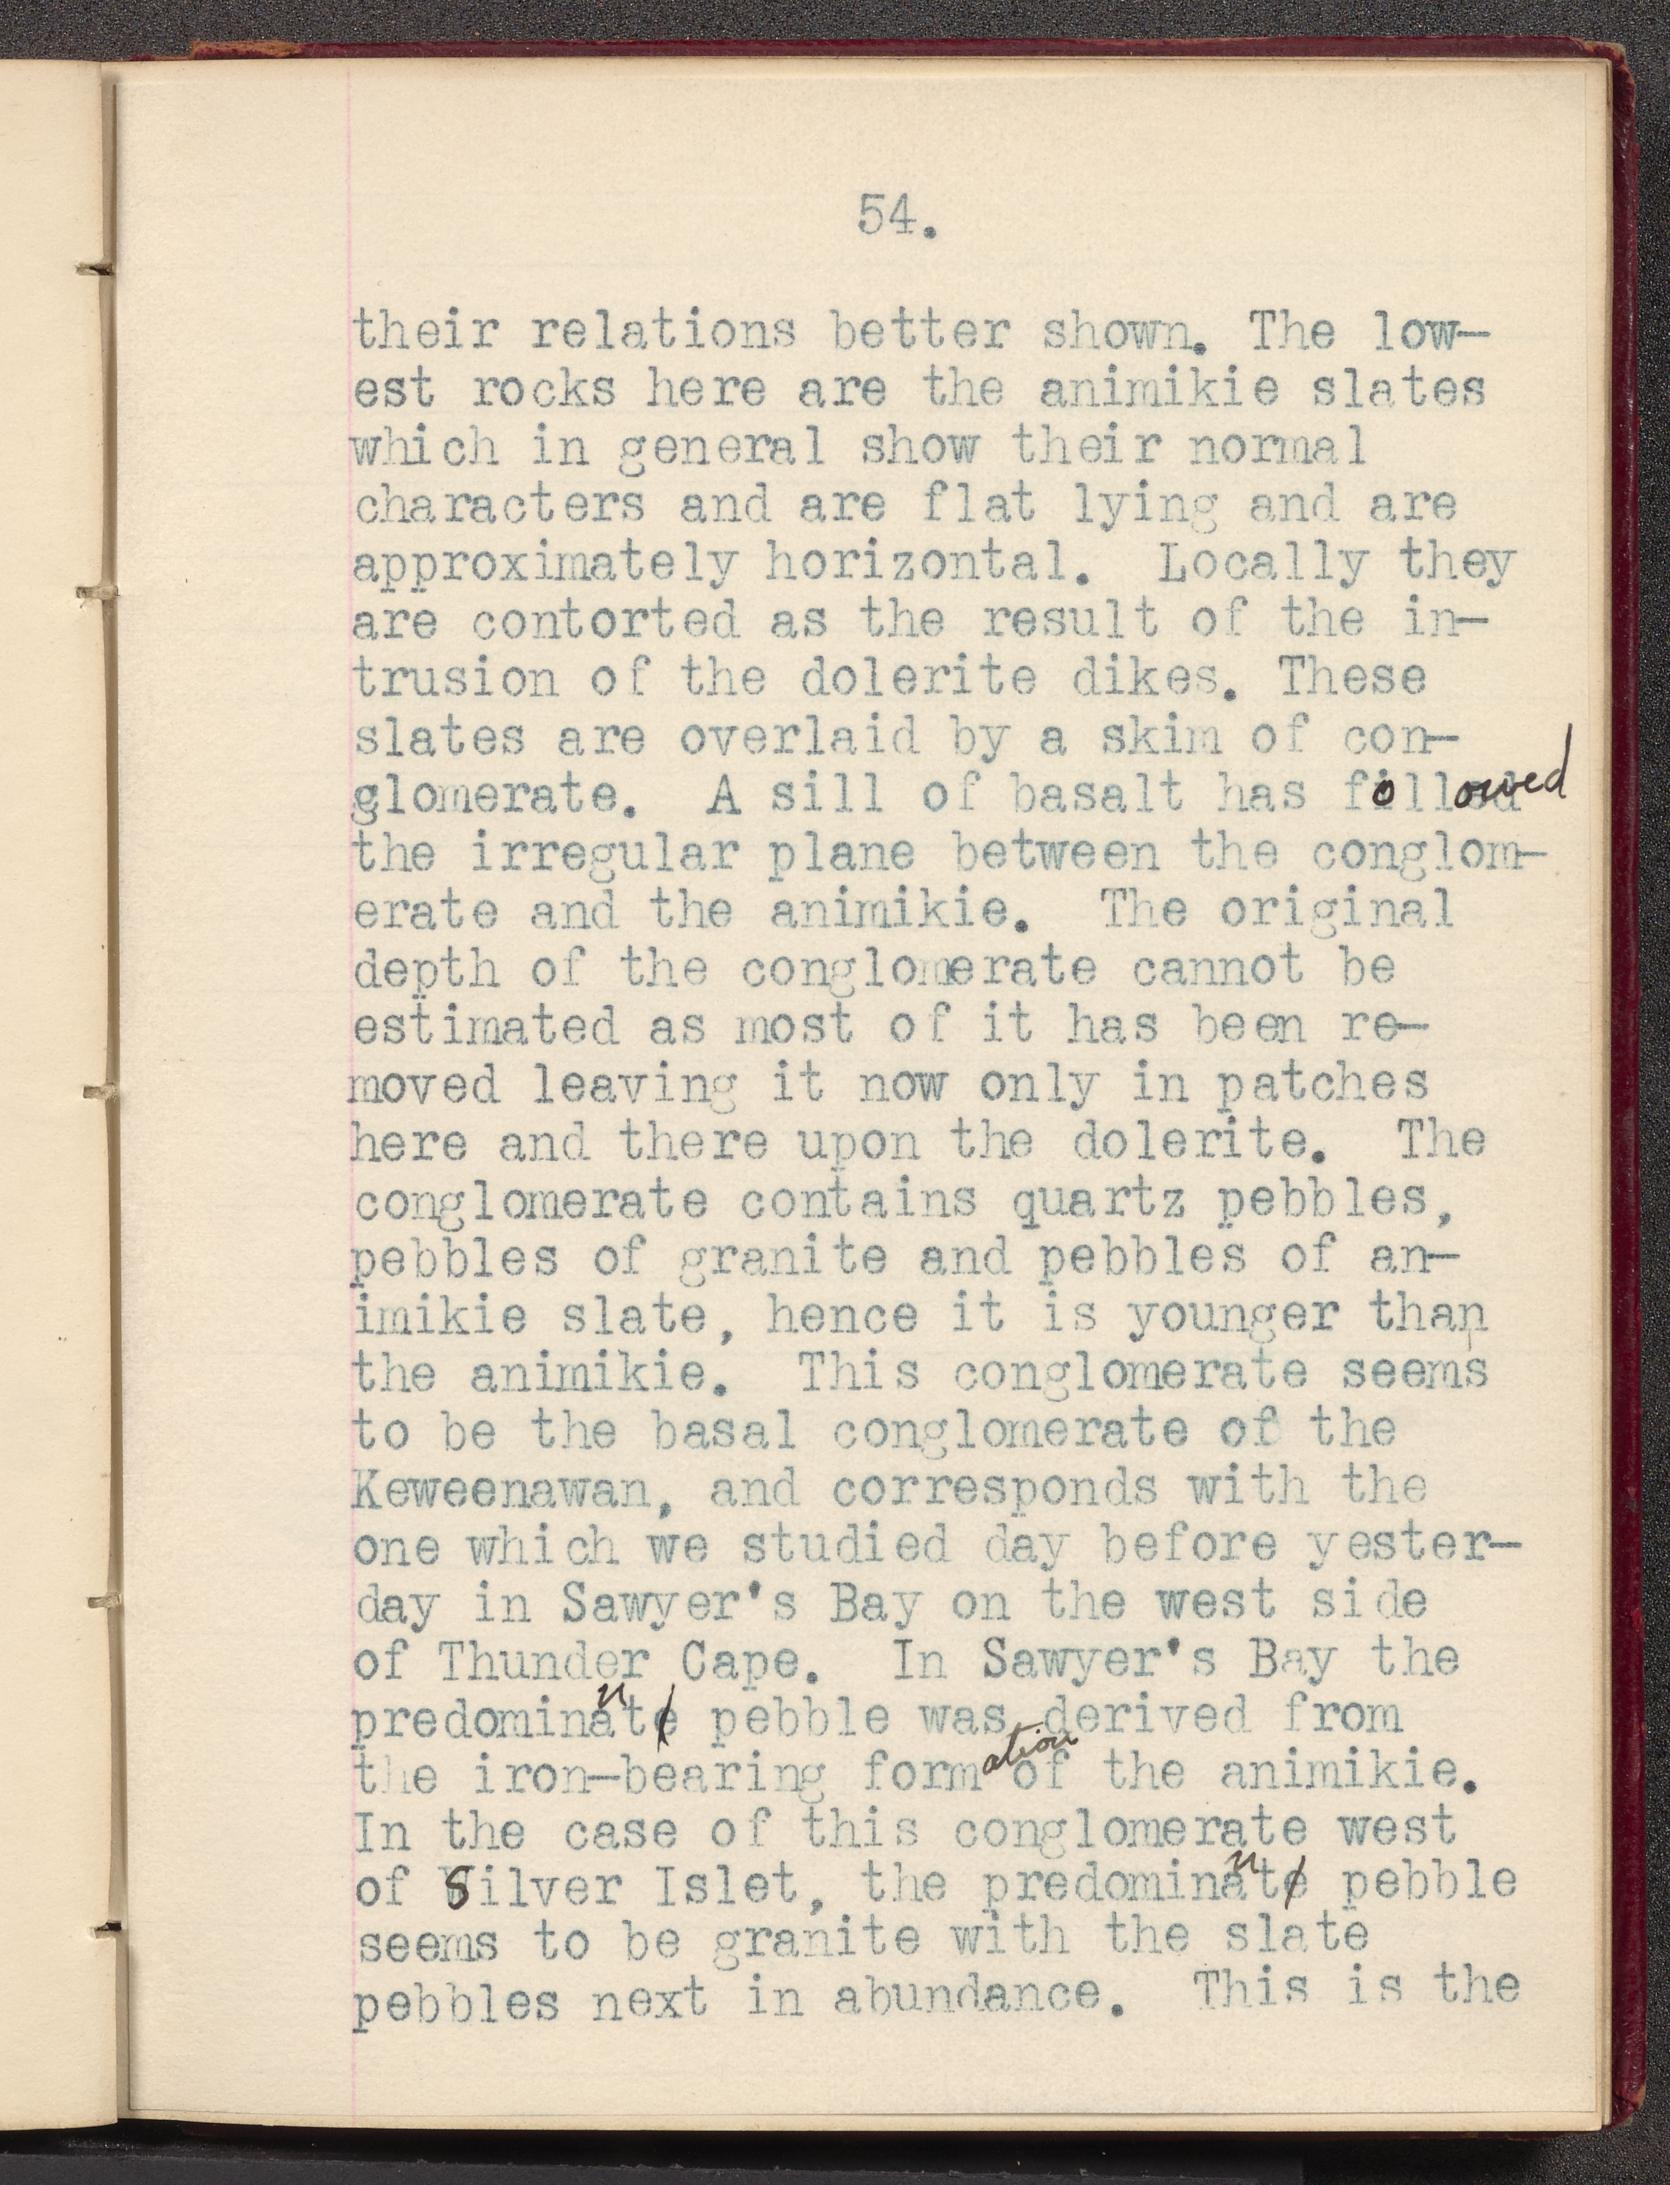 54.
their relations better shown. The low-
est rocks here are the animikie slates
which in general show their normal
characters and are flat lying and are
approximately horizontal. Locally they
are contorted as the result of the in-
trusion of the dolerite dikes. These
slates are overlaid by a skim of con-
glomerate. A sill of basalt has followed
the irregular plane between the conglom-
erate and the animikie. The original
depth of the conglomerate cannot be
estimated as most of it has been re-
moved leaving it now only in patches
here and there upon the dolerite. The
conglomerate contains quartz pebbles,
pebbles of granite and pebbles of an-
imikie slate, hence it is younger than
the animikie. This conglomerate seems
to be the basal conglomerate of the
Keweenawan, and corresponds with the
one which we studied day before yester-
day in Sawyer's Bay on the west side
of Thunder Cape. In Sawyer's Bay the
predominant pebble was derived from
the iron-bearing formation of the animikie.
In the case of this conglomerate west
of Silver Islet, the predominant pebble
seems to be granite with the slate
pebbles next in abundance. This is the